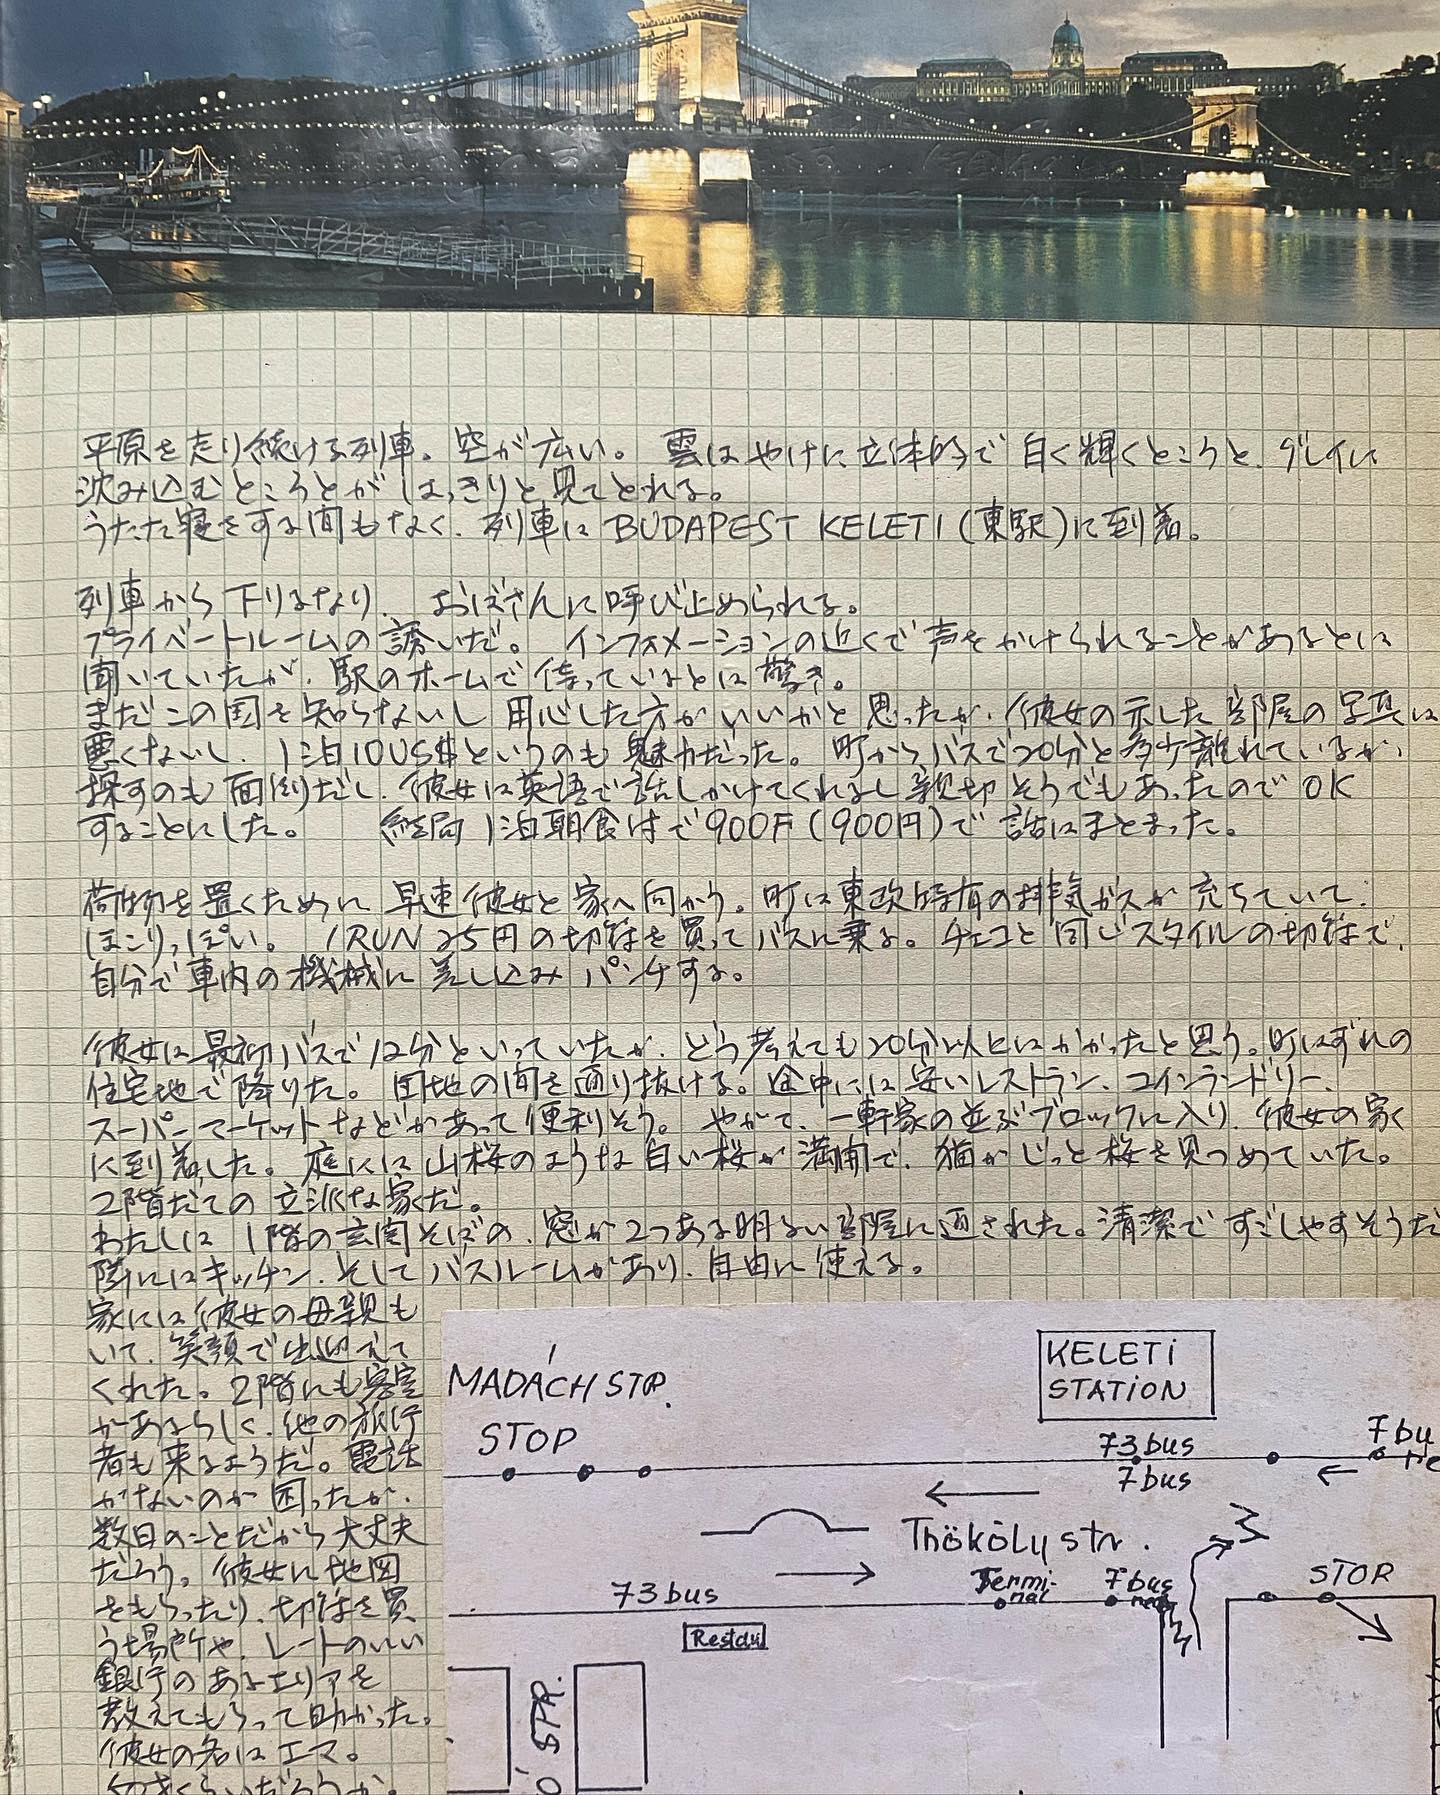 平原を走り続ける列車。空が広い。雲はやけに立体的で白く輝くところと、グレイに
沈み込むところとがはっきりと見てとれる。
うたた寝をする間もなく、列車は BUDAPEST KELETI (東駅)に到着。
列車から下りるなり、おばさんに呼び止められる。
プライベートルームの誘いだ。インフォメーションの近くで声をかけられることがあるとは
聞いていたが、駅のホームで待っているとは驚き。
まだこの国を知らないし用心した方がいいかと思ったが、彼女の示した部屋の写真は
悪くないし、1泊10US$というのも魅力だった。町からバスで20分と多少離れているが、
探すのも面倒だし、彼女は英語で話しかけてくれるし親切そうでもあったのでOK
することにした。結局1泊朝食付で900F(900円)で話はまとまった。
荷物を置くために早速彼女と家へ向かう。町は東欧特有の排気ガスが充ちていて、
ほこりっぽい。1RUN 25円の切符を買ってバスに乗る。チェコと同じスタイルの切符で、
自分で車内の機械に差し込みパンチする。
彼女は最初バスで12分といっていたが、どう考えても20分以上はかかったと思う。町はずれの
住宅地で降りた。団地の間を通り抜ける。途中には安いレストラン、コインランドリー、
スーパーマーケットなどがあって便利そう。やがて、一軒家の並ぶブロックに入り、彼女の家
に到着した。庭には山桜のような白い桜が満開で、猫がじっと桜を見つめていた。
2階だての立派な家だ。
わたしは1階の玄関そばの、窓が2つある明るい部屋に通された。清潔ですごしやすそうだ
隣にはキッチン、そしてバスルームがあり、自由に使える。
家には彼女の母親も
いて、笑顔で出迎えて
くれた。2階にも客室
があるらしく、他の旅行
者も来るようだ。電話
がないのが困ったが、
数日のことだから大丈夫
だろう。彼女に地図
をもらったり、切符を買
う場所や、レートのいい
銀行のあるエリアを
教えてもらって助かった。
彼女の名はエマ。
くらいだろうか。
MADÁCH STR.
STOP
KELETi
STATiON
73 bus
7 bus
7 bu
Thököly str.
73 bus
Termi-
nal
7 bus
STOP
Restau
Ó STR.